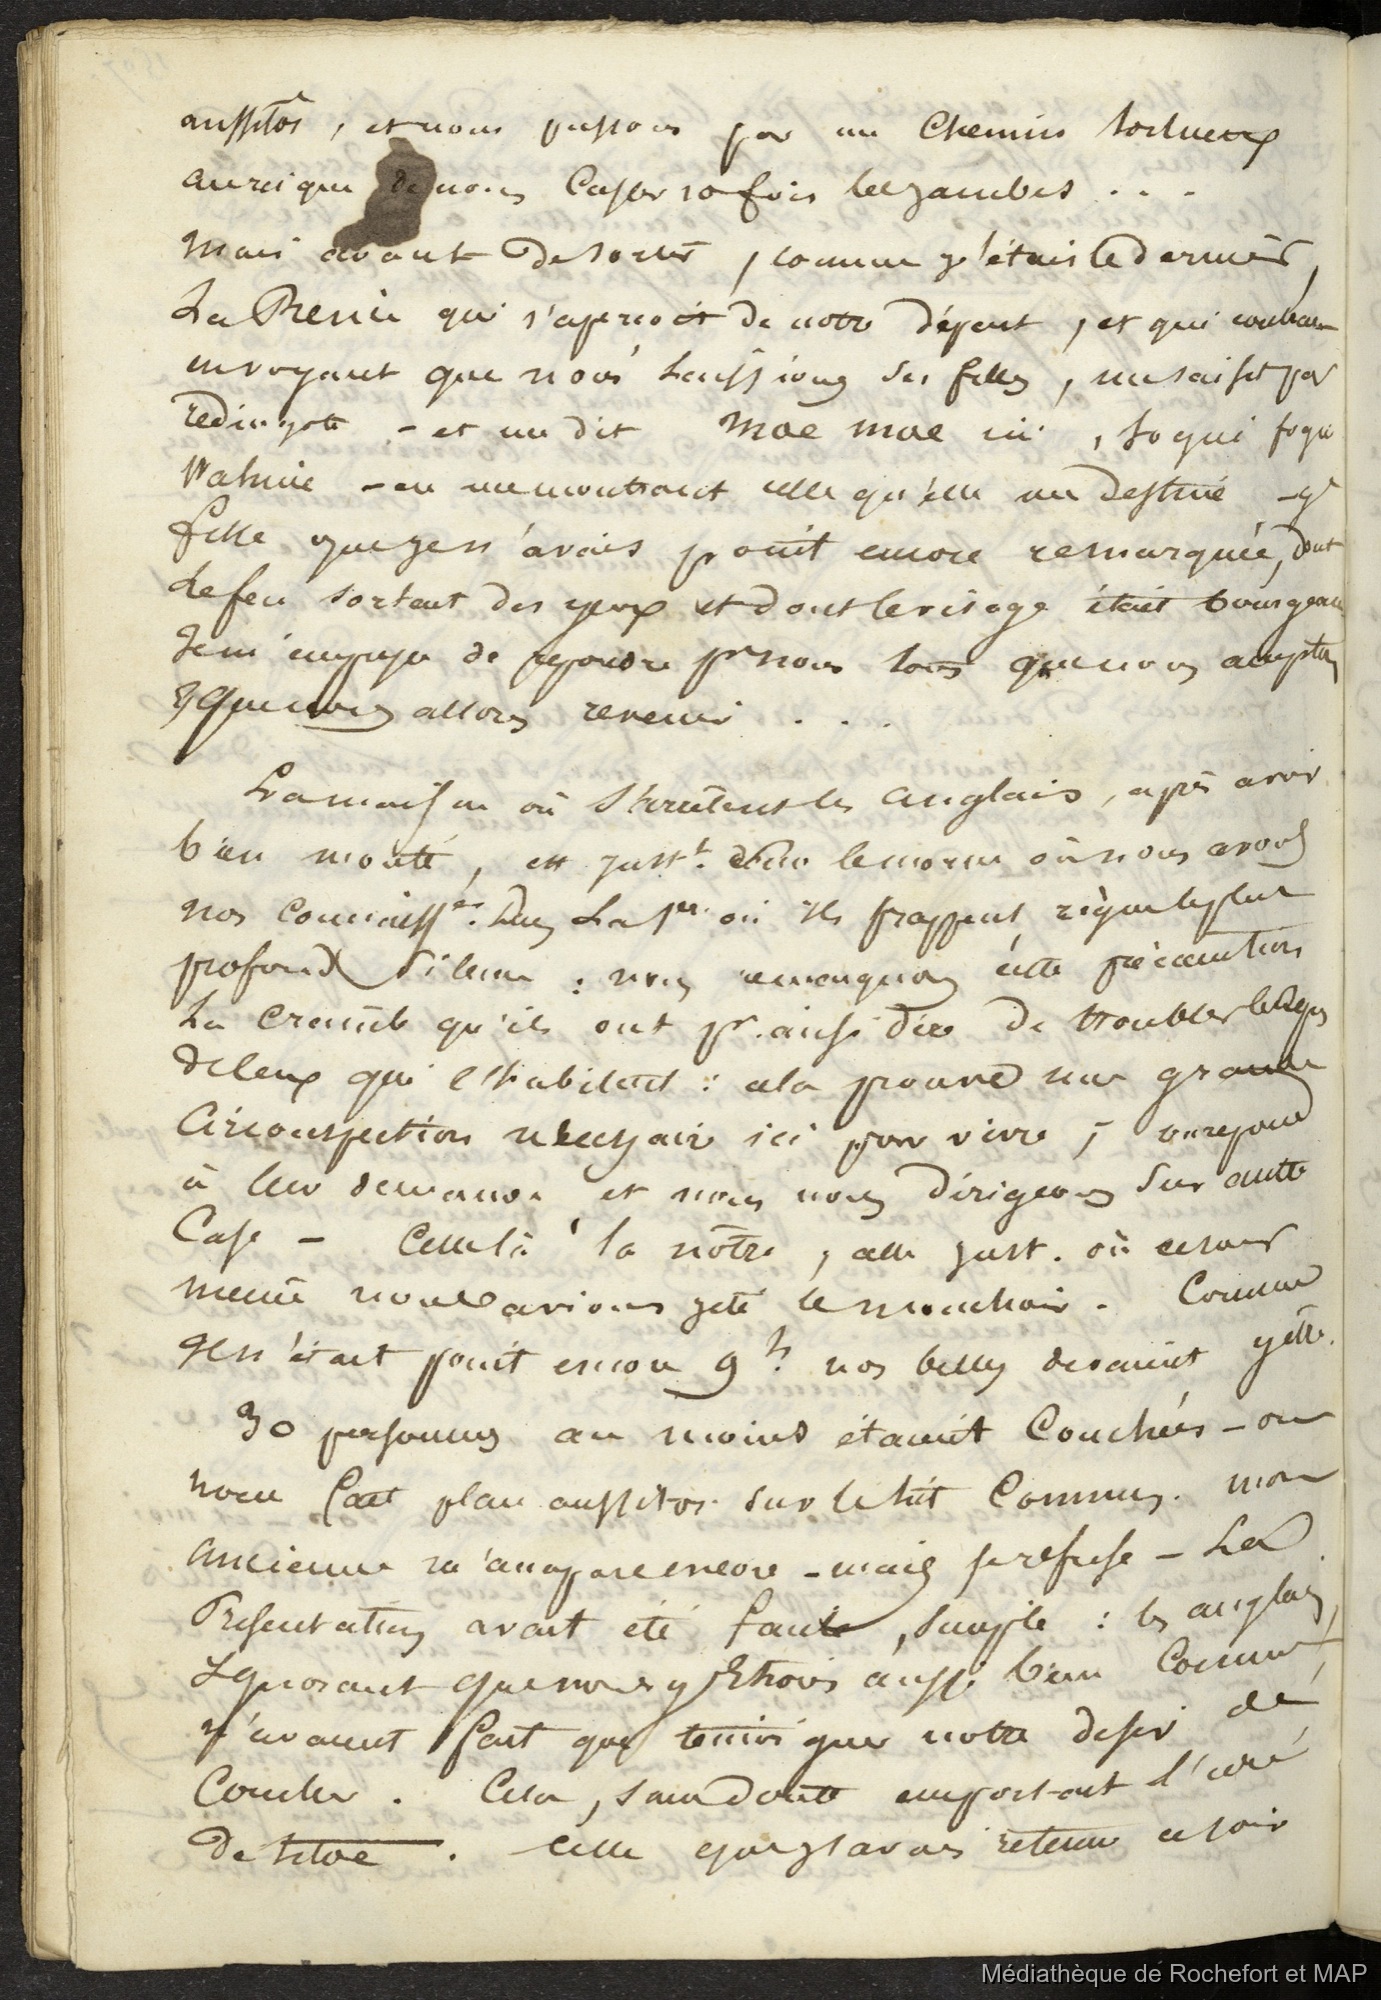 aussitôt, et nous passons par un chemin tortueux
au risque de nous casser 10 fois les jambes . . .
mais avant de sortir, comme j'étais le dernier,
La Reine qui s'aperçoit de notre départ, et qui
en voyant que nous laissions ses filles, me saisit par
redingote - et me dit mae mae
- en me montrant celle qu'elle me destine -
fille que je n'avais point encore remarquée, dont
le feu sortent des yeux et dont le visage était
Je m'empresse de repondre pr nous tous que nous acceptons
& que nous allons revenir . . .
La maison où s'arrêtent les anglais, après avoir
bien monté, est justt. dans le morne où nous avons
nos connaissces. Dans La pre. où ils frappent règne le plus
profond silence : nous remarquons cette précaution
La crainte qu'ils ont pr. ainsi dire de troubler le repos
de ceux qui l'habitent : cela prouve une grande
Circonspection necessaire ici pour vivre ; on repond
à leur demande et nous nous dirigeons sur autre
Case - Celle là la nôtre, celle just. où ce soir
même nous avions jeté le mouchoir. Comme
il n'était point encore 9h. nos belles devaient y être.
30 personnes au moins étaient couchées - on
nous fait place aussitôt sur le lit commun. mon
ancienne m'accapare encore - mais je refuse - La
Présentation avait été faite, simple : les anglais,
Ignorant que nous y étions aussi bien connus,
n'avaient fait que temoigner notre desir de
coucher. Cela, sans doute emportait l'idée
de . Celle que j'avais retenue ce soir
Médiathèque de Rochefort et MAP